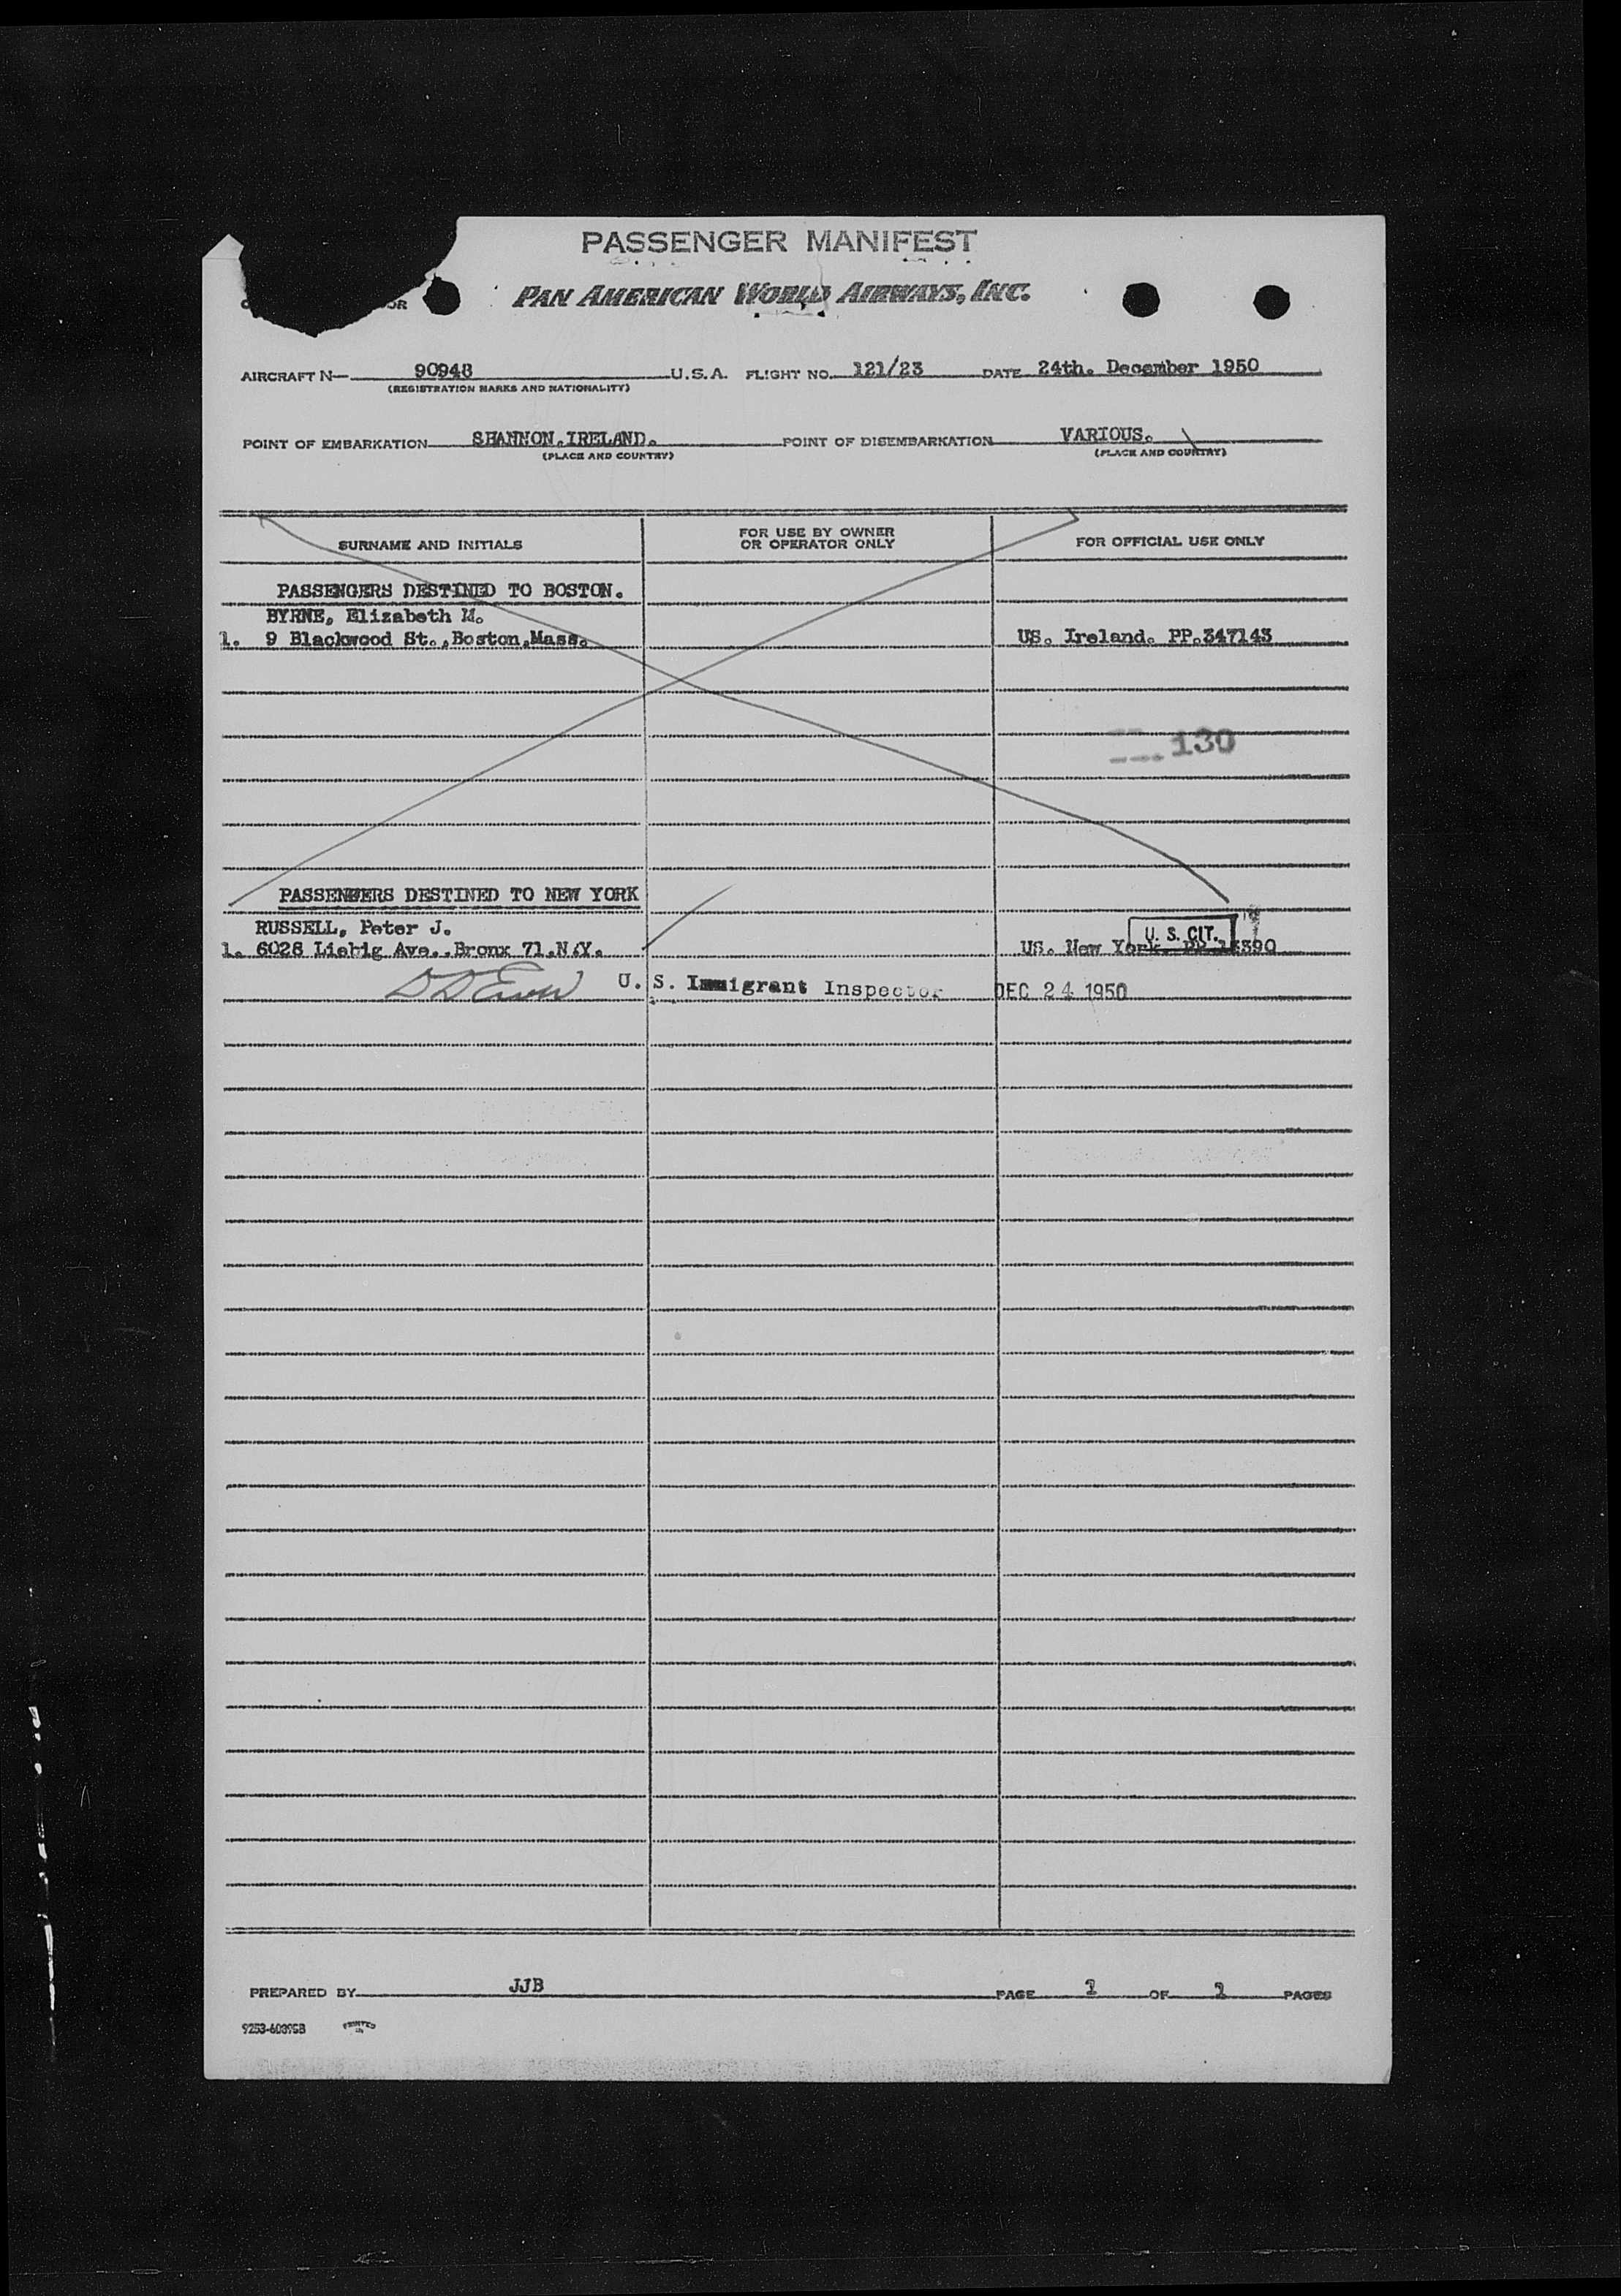 PASSENGER MANIFEST
PAN AMERICAN WORLD AIRWAYS, INC.
AIRCRAFT N 90948 U.S.A. FLIGHT NO. 121/23 DATE 24th. December 1950
(REGISTRATION MARKS AND NATIONALITY)
POINT OF EMBARKATION SHANNON.IRELAND. POINT OF DISEMBARKATION VARIOUS.
(PLACE AND COUNTRY) (PLACE AND COUNTRY)
SURNAME AND INITIALS FOR USE BY OWNER OR OPERATOR ONLY FOR OFFICIAL USE ONLY
PASSENGERS DESTINED TO BOSTON.
BYRNE, Elizabeth M.
1. 9 Blackwood St.,Boston.Mass. US. Ireland. PP.347143
130
PASSENGERS DESTINED TO NEW YORK
RUSSELL, Peter J.
U. S. CIT.
1. 6028 Liebig Ave..Bronx 71.N.Y. US. New York. PP
U. S. Immigrant Inspector DEC 24 1950
PREPARED BY JJB PAGE 1 OF 1 PAGES
9253-60395B PRINTED IN